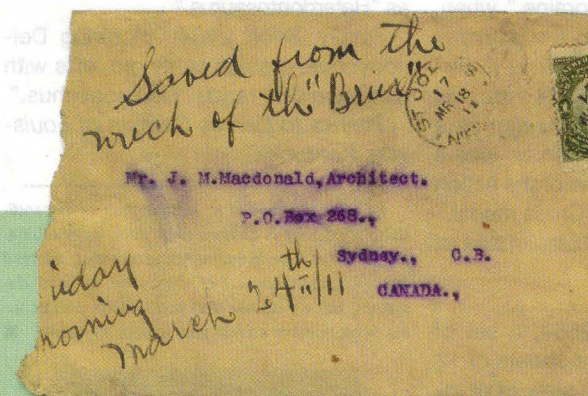 Saved from the
wreck of th "Bruce"
ST JOH
17
MR 18
11
Mr. J. M.Macdonald,Architect.
P.O.Box 268.,
Sydney., C.B.
CANADA.,
iday
morning
March 24th 11/11